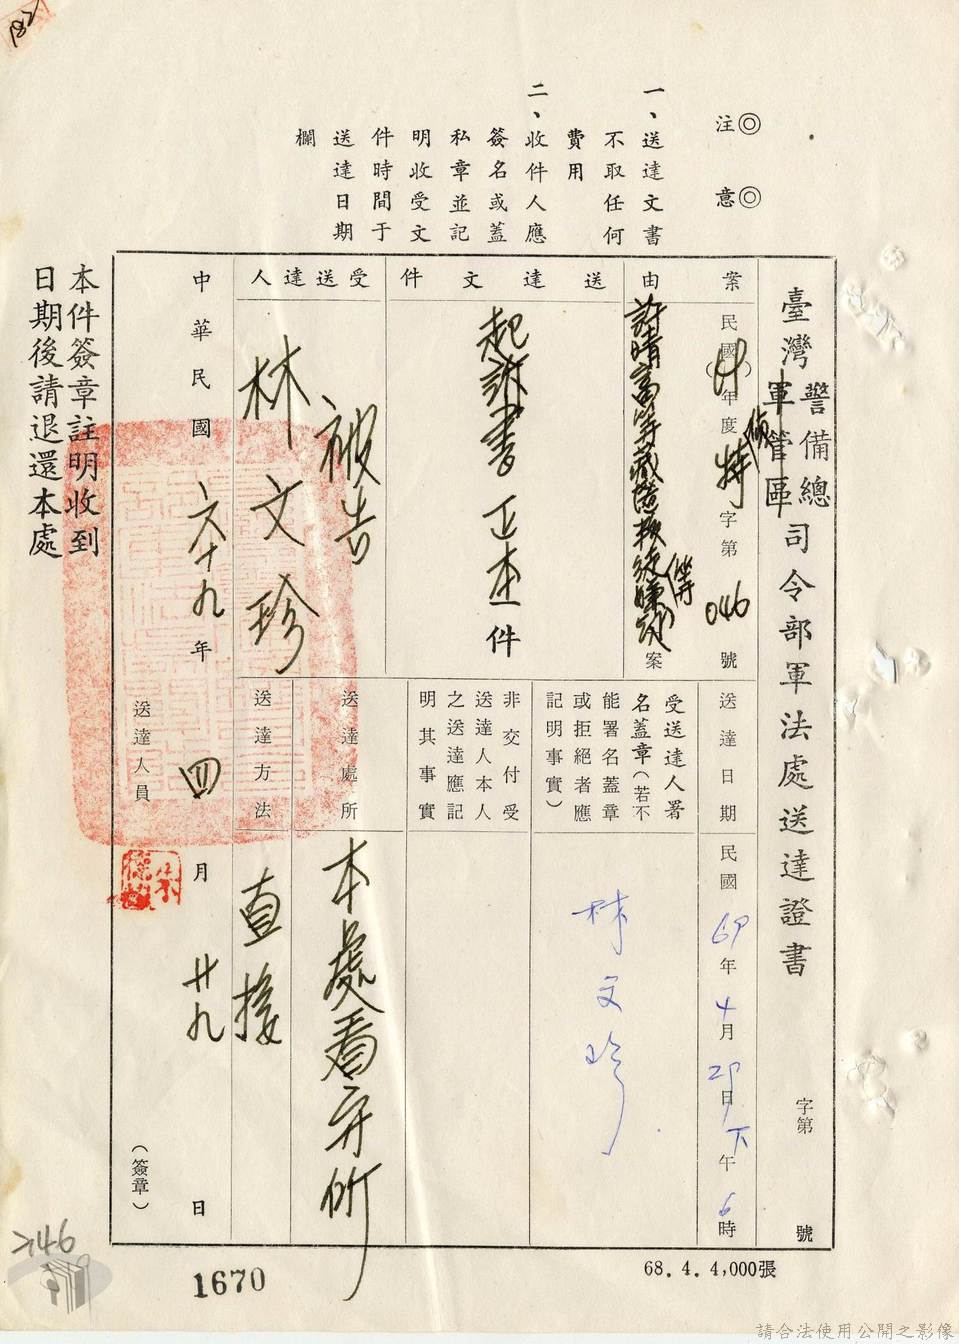 ◎注意◎
一、送達文書
不取任何
費用
二、收件人應
簽名或蓋
私章並記
明收受文
件時間于
送達日期
欄
臺灣警備總軍管區司令部軍法處送達證書
字第
號
案由
民國()年度
偵特字第046號
許晴富等藏匿叛徒嫌疑等案
送達文件
起訴書正本一件
受送達人
被告
林文珍
送達日期
民國69年4月29日下午6時
受送達人署
名蓋章(若不
能署名蓋章
或拒絕者應
記明事實)
林文珍
非交付受
送達人本人
之送達應記
明其事實
送達處所
本處看守所
送達方法
直接
中華民國六十九年四月廿九日
送達人員
(簽章)
本件簽章註明收到
日期後請退還本處
2146
1670
68.4.4,000張
請合法使用公開之影像